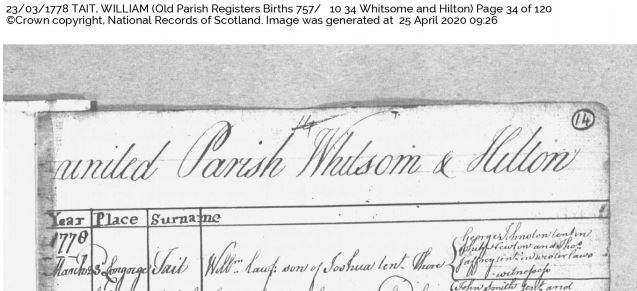 23/03/1778 TAIT, WILLIAM (Old Parish Registers Births 757/ 10 34 Whitsome and Hilton) Page 34 of 120
©Crown copyright, National Records of Scotland. Image was generated at 25 April 2020 09:26
14
14
united Parish Whitsom & Hilton
Year Place Surname
1778
George Johnston tent in
Newton and Thos
March Tait Willm lawf: son of Joshua tent. there
witnesses
John Smith tent and